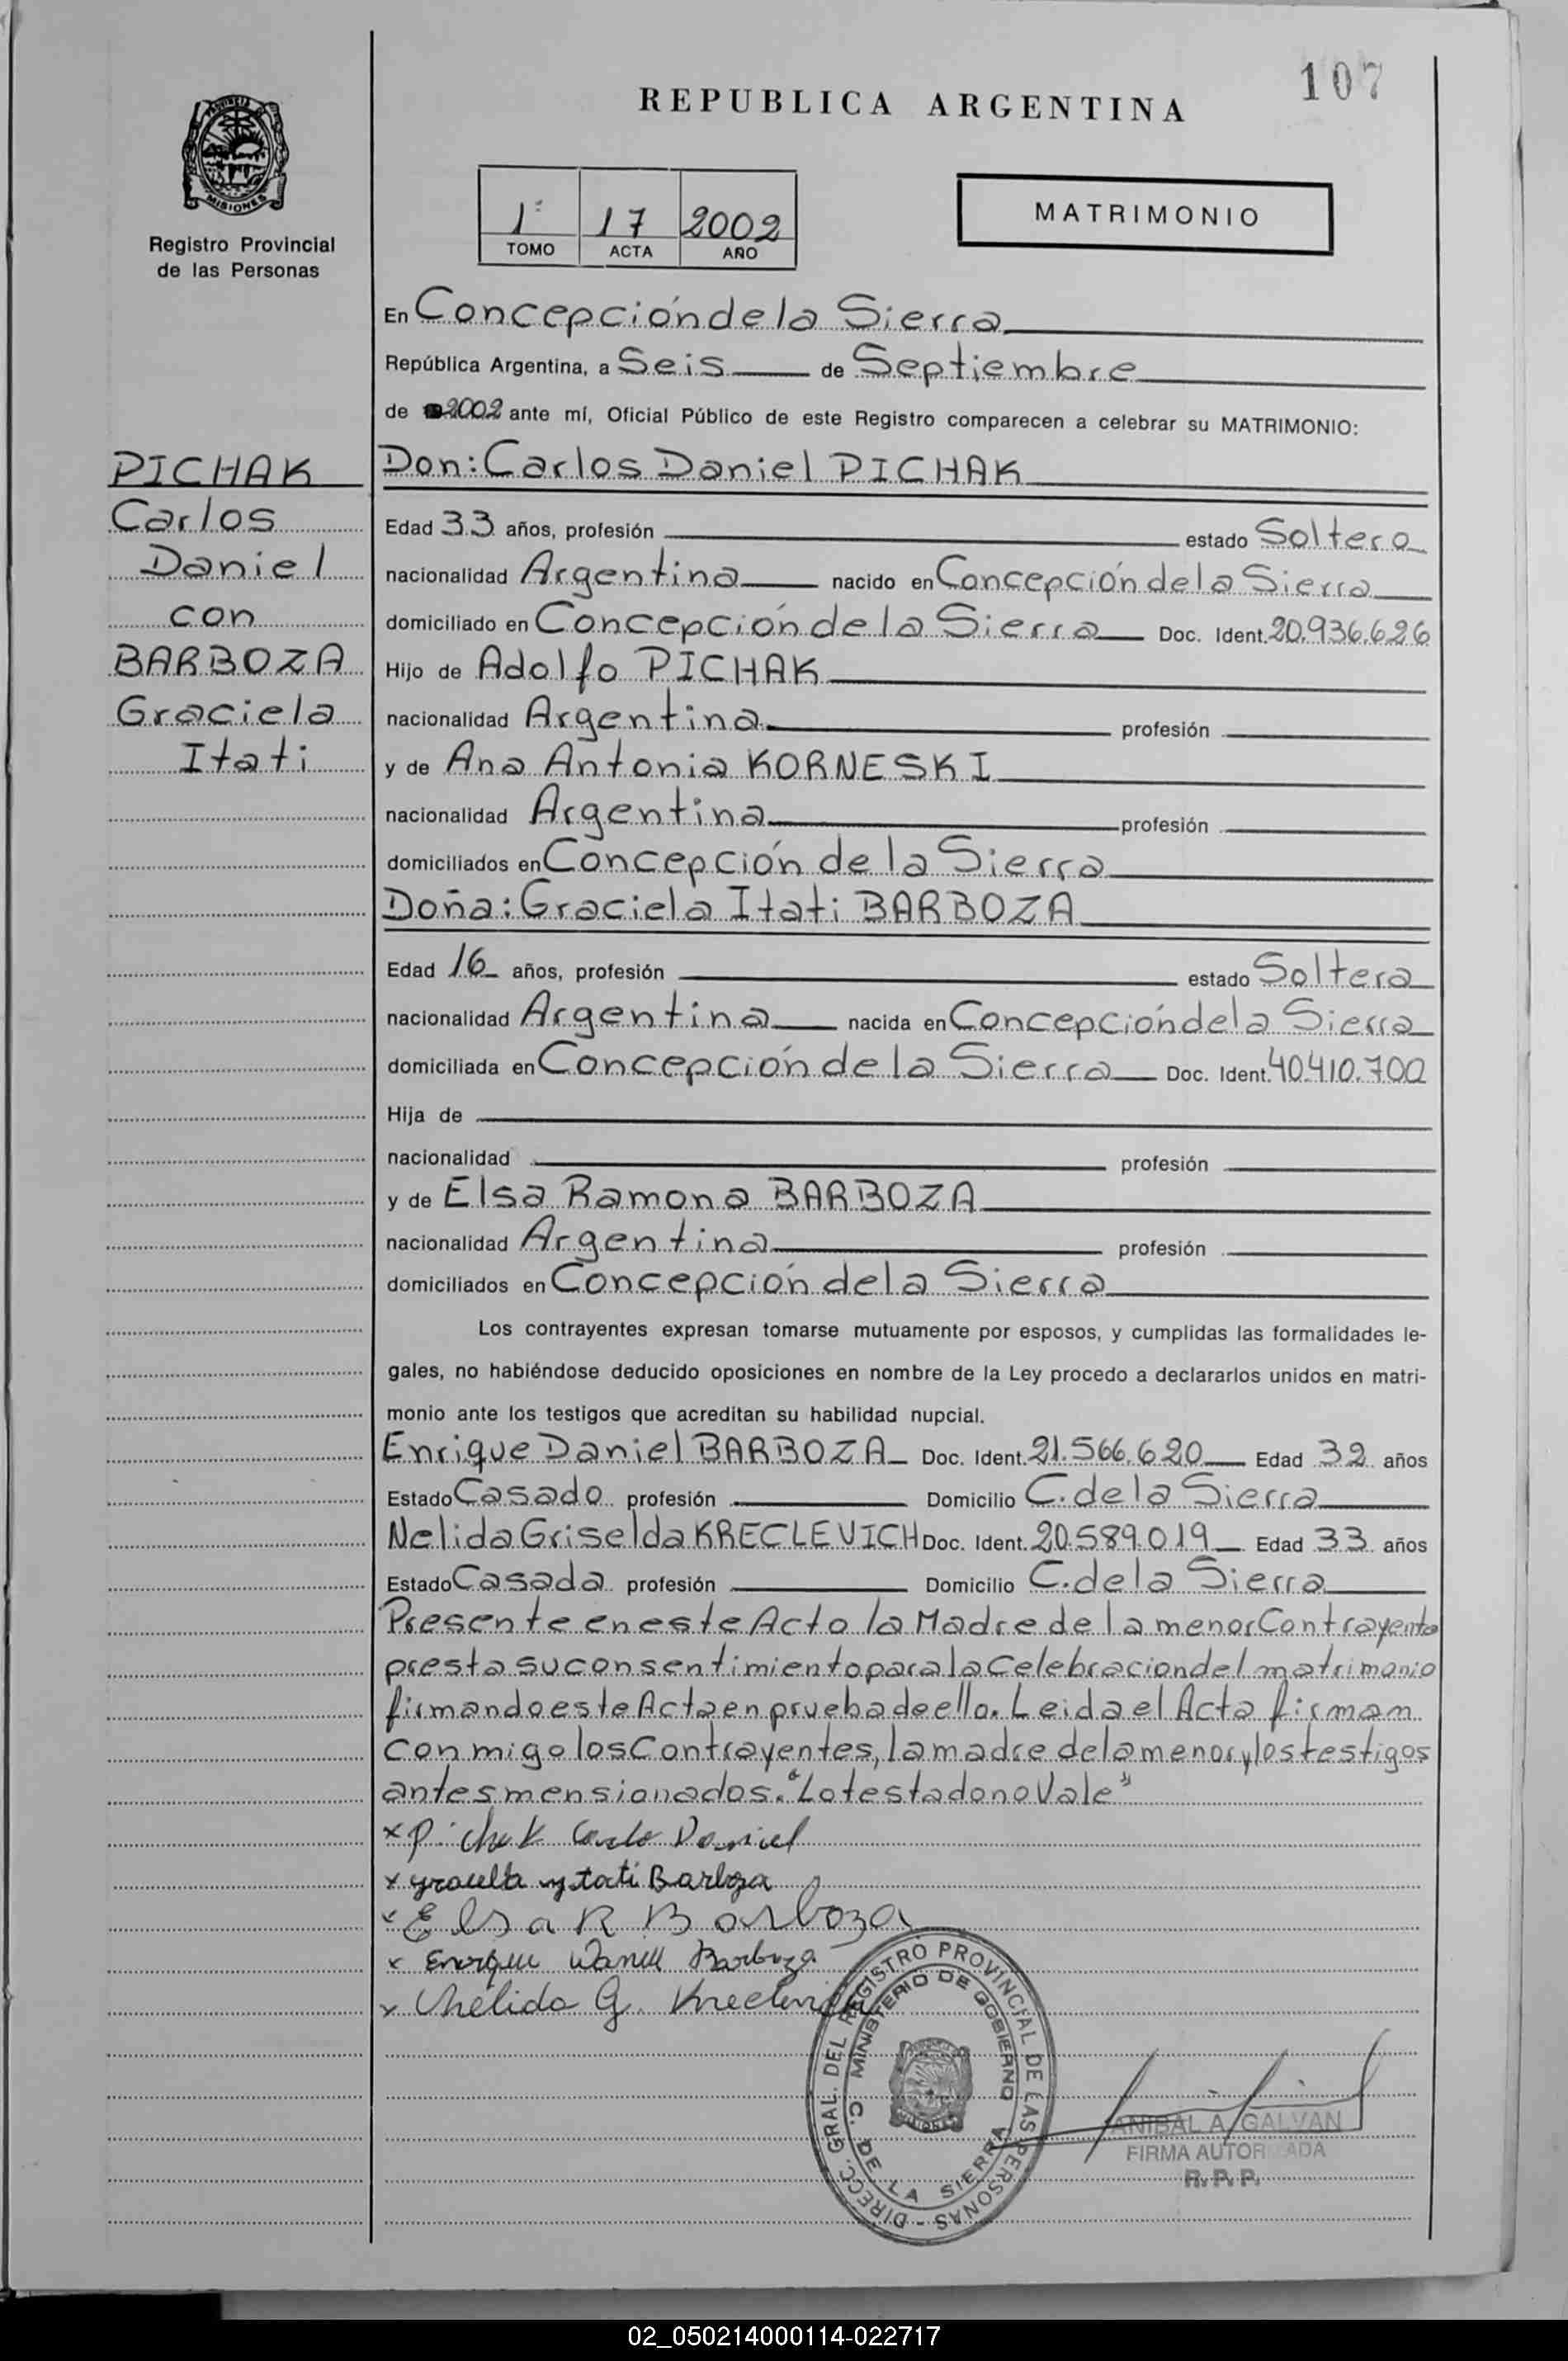 107
REPUBLICA ARGENTINA
MISIONES
Registro Provincial
de las Personas
1º 17 2002
TOMO ACTA AÑO
MATRIMONIO
En Concepción de la Sierra
República Argentina, a Seis de Septiembre
de 2002 ante mí, Oficial Público de este Registro comparecen a celebrar su MATRIMONIO:
PICHAK
Carlos
Daniel
con
BARBOZA
Graciela
Itati
Don: Carlos Daniel PICHAK
Edad 33 años, profesión estado Soltero
nacionalidad Argentina nacido en Concepción de la Sierra
domiciliado en Concepción de la Sierra Doc. Ident. 20.936.626
Hijo de Adolfo PICHAK
nacionalidad Argentina profesión
y de Ana Antonia KORNESKI
nacionalidad Argentina profesión
domiciliados en Concepción de la Sierra
Doña: Graciela Itati BARBOZA
Edad 16 años, profesión estado Soltera
nacionalidad Argentina nacida en Concepción de la Sierra
domiciliada en Concepción de la Sierra Doc. Ident. 40.410.700
Hija de
nacionalidad profesión
y de Elsa Ramona BARBOZA
nacionalidad Argentina profesión
domiciliados en Concepción de la Sierra
Los contrayentes expresan tomarse mutuamente por esposos, y cumplidas las formalidades le-
gales, no habiéndose deducido oposiciones en nombre de la Ley procedo a declararlos unidos en matri-
monio ante los testigos que acreditan su habilidad nupcial.
Enrique Daniel BARBOZA Doc. Ident. 21.566.620 Edad 32 años
Estado Casado profesión Domicilio C. de la Sierra
Nelida Griselda KRECLEVICH Doc. Ident. 20.589.019 Edad 33 años
Estado Casada profesión Domicilio C. de la Sierra
Presente en este Acto la Madre de la menor Contrayente
presta su consentimiento para la Celebracion del matrimonio
firmando este Acta en prueba de ello. Leida el Acta firman
conmigo los Contrayentes, la madre de la menor y los testigos
antes mensionados. "Lo testado no Vale"
x Pichak Carlo Daniel
x graciela ytati Barboza
x Elsa R Barboza
x Enrique Daniel Barboza
x Nélida G. Kreclevich
DIRECC. GRAL. DEL REGISTRO PROVINCIAL DE LAS PERSONAS -
MINISTERIO DE GOBIERNO
C. DE LA SIERRA
ANIBAL A. GALVAN
FIRMA AUTORIZADA
R. P. P.
02_050214000114-022717